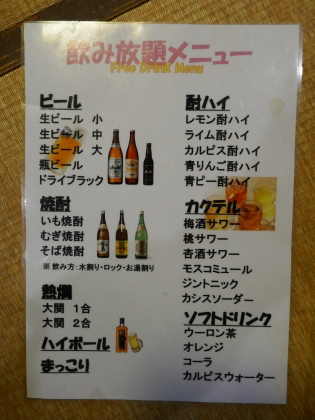 飲み放題メニュー
Free Drink Menu
ビール
生ビール 小
生ビール 中
生ビール 大
瓶ビール
ドライブラック
焼酎
いも焼酎
むぎ焼酎
そば焼酎
※飲み方:水割り・ロック・お湯割り
熱燗
大関 1合
大関 2合
ハイボール
まっこり
酎ハイ
レモン酎ハイ
ライム酎ハイ
カルピス酎ハイ
青りんご酎ハイ
青ピー酎ハイ
カクテル
梅酒サワー
桃サワー
杏酒サワー
モスコミュール
ジントニック
カシスソーダー
ソフトドリンク
ウーロン茶
オレンジ
コーラ
カルピスウォーター